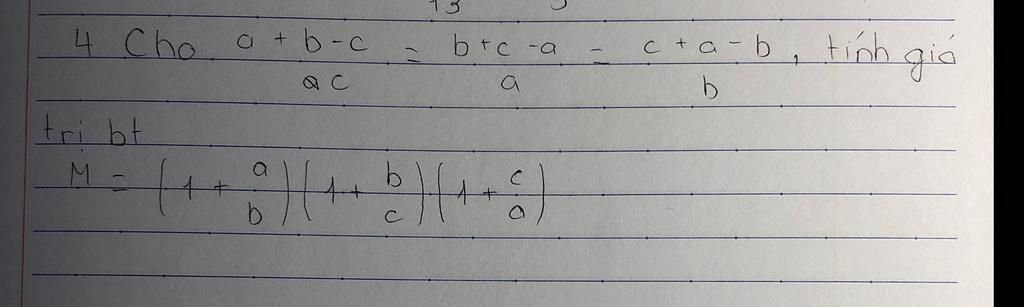 13
4 Cho a + b - c = b + c - a = c + a - b, tính giá
c a b
trị bt
M = (1 + a/b)(1 + b/c)(1 + c/a)